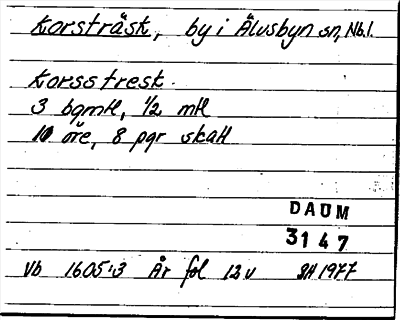 Korsträsk, by i Älvsbyn sn, Nb.l.
Korsstresk.
3 bgmtl, 1/2 mtl
10 öre, 8 pgr skatt
DAUM
3147
Vb 1605:3 År fol 12v SH 1977